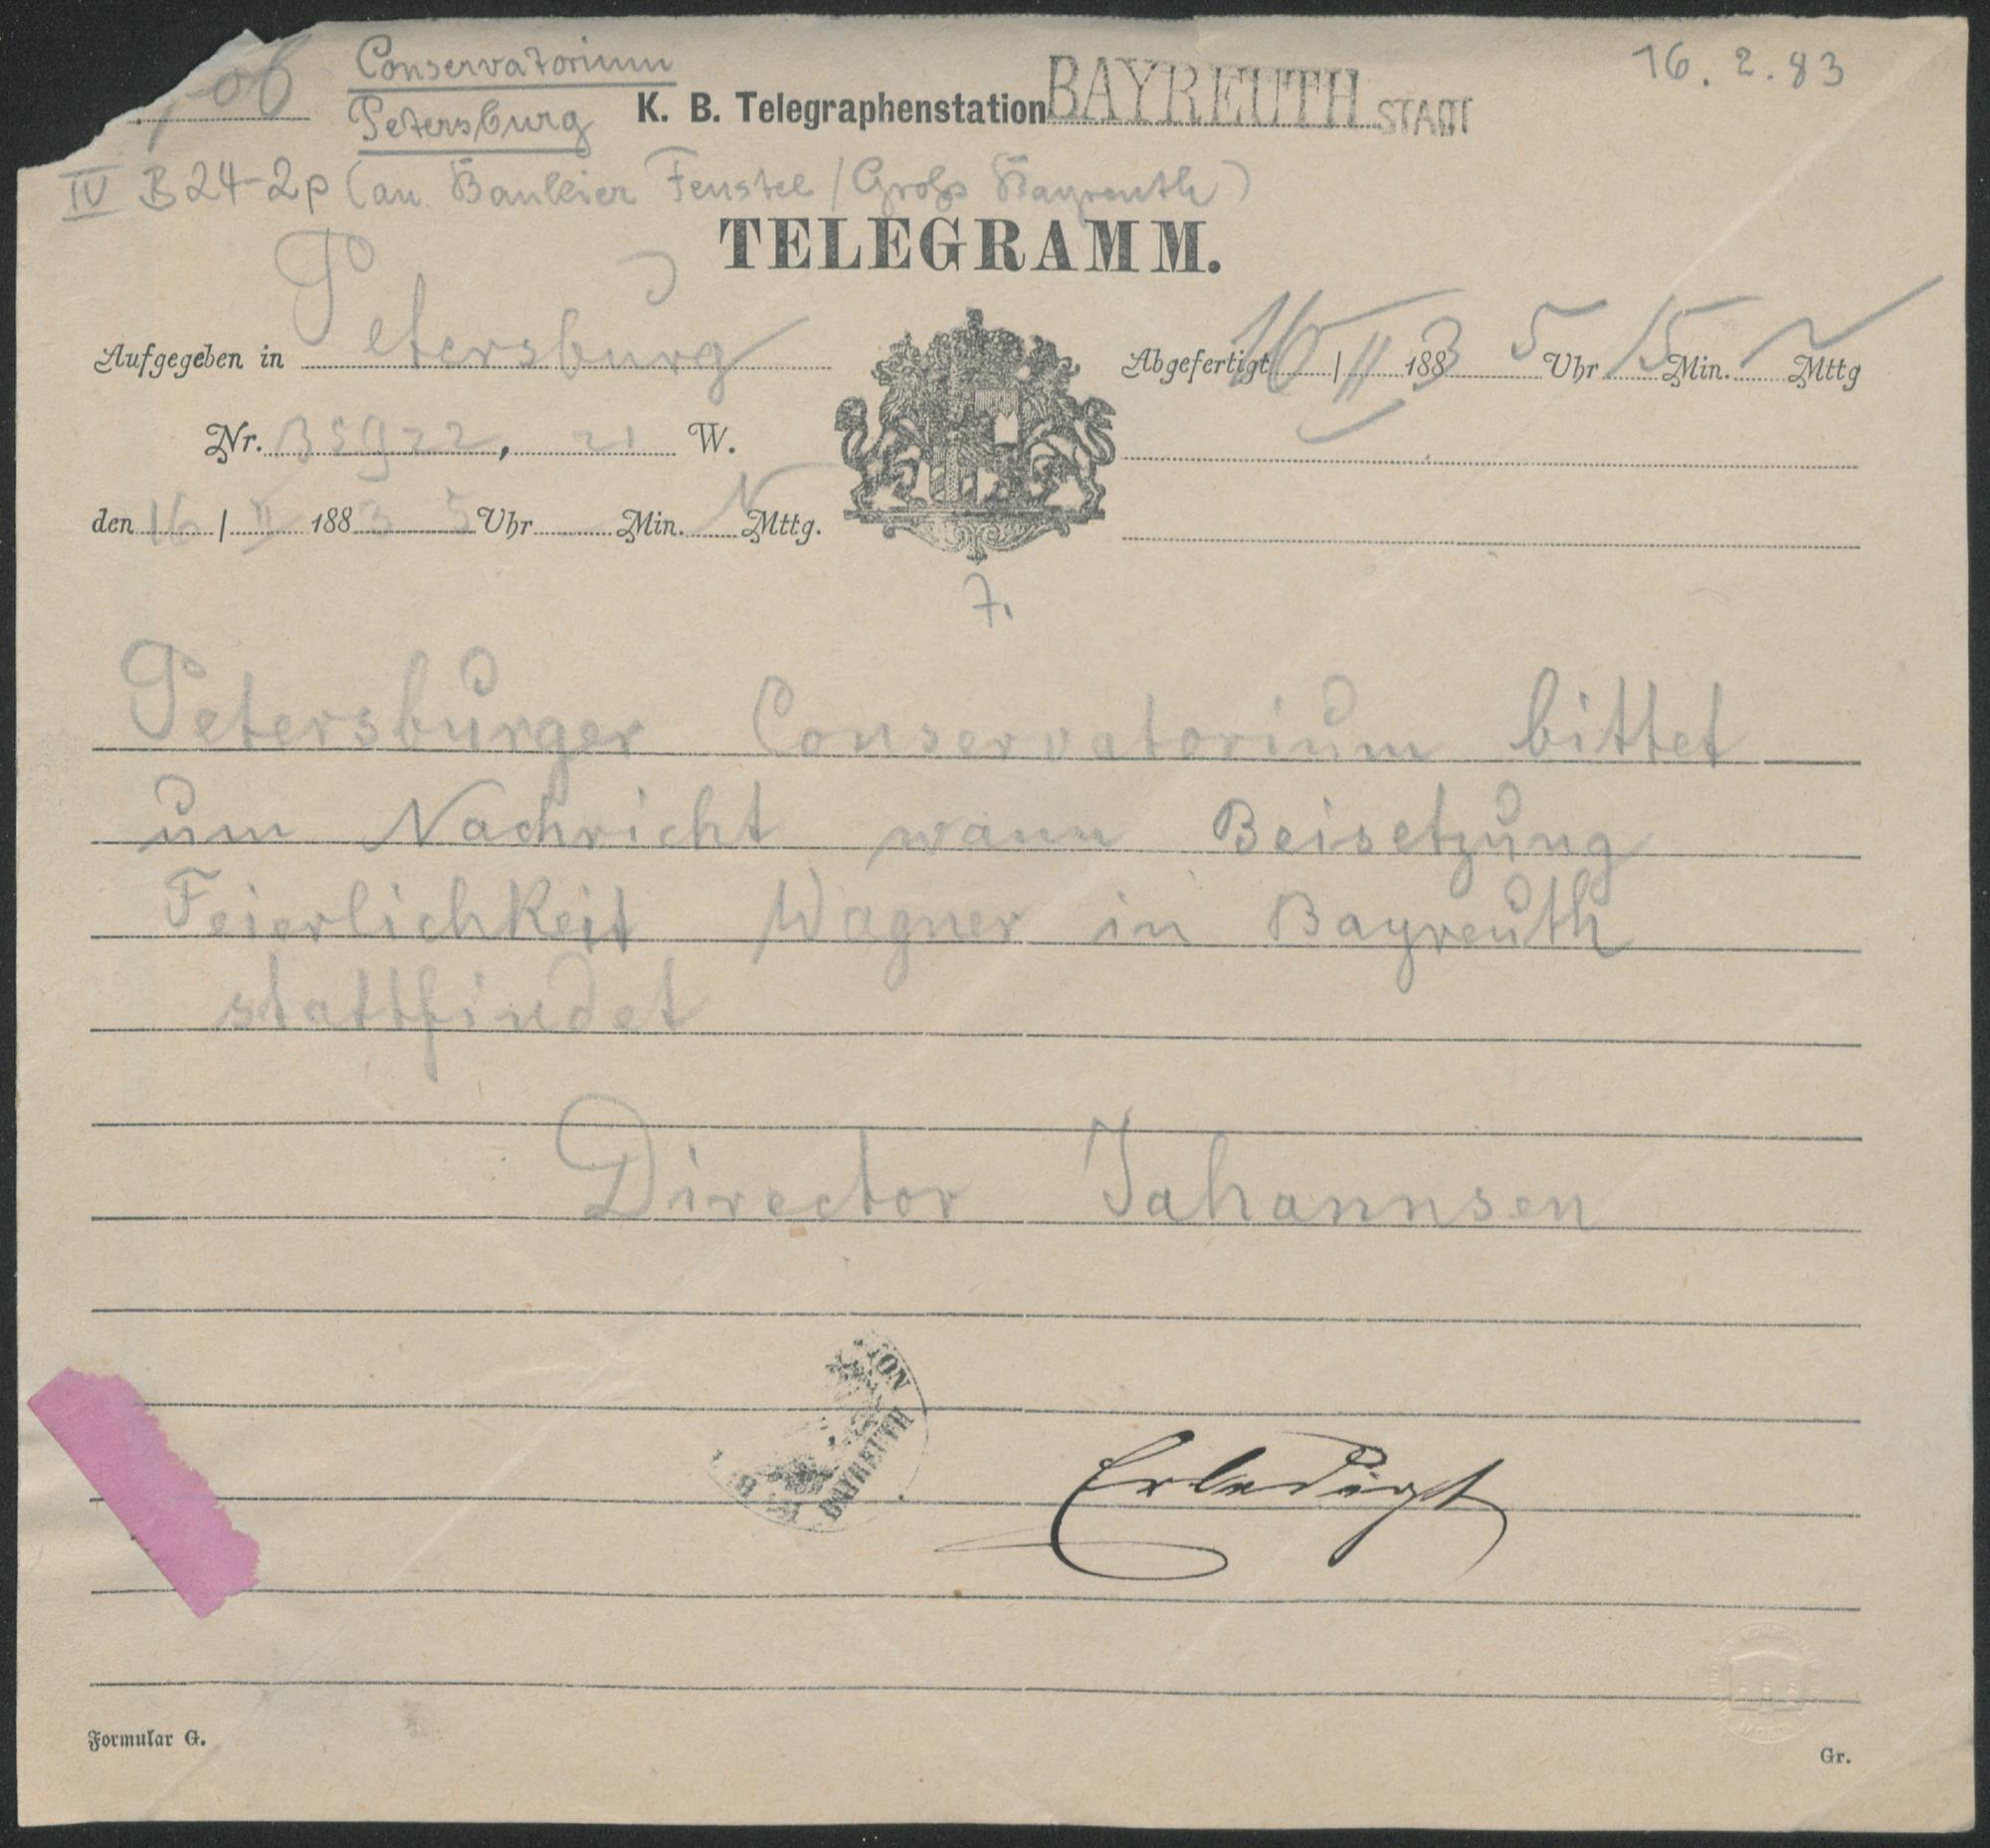 Conservatorium 16.2.83
Petersburg K. B. Telegraphenstation BAYREUTH STADT
IV B 24-2p (an Bankier Feustel / Groß Bayreuth)
TELEGRAMM.
Aufgegeben in Petersburg Abgefertigt 16 / II 1883 5 Uhr 15 Min. N Mttg
Nr. , 21 W.
den 16 / II 1883 5 Uhr Min. N Mttg.
7.
Petersburger Conservatorium bittet
um Nachricht wann Beisetzung
Feierlichkeit Wagner in Bayreuth
stattfindet
Director Jahannsen
BAYREUTH
Erledigt
Formular G. Gr.